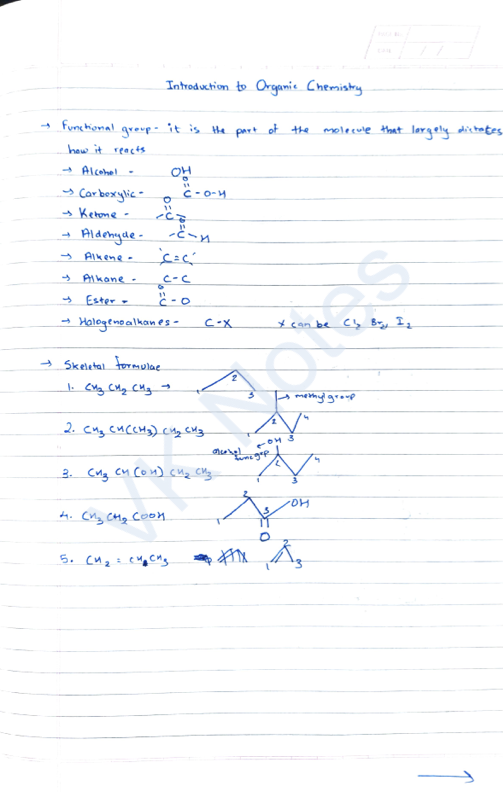 Introduction to Organic Chemistry
→ Functional group - it is the part of the molecule that largely dictates
how it reacts
→ Alcohol - OH
→ Carboxylic - O
C - O - H
→ Ketone - O
C
→ Aldehyde - O
- C - H
→ Alkene - C = C
→ Alkane - C - C
→ Ester - O
C - O
→ Halogenoalkanes - C - X X can be Cl, Br2, I2
→ Skeletal formulae
1. CH3 CH2 CH3 → 1 2 3
→ methyl group
2. CH3 CH(CH3) CH2 CH3 1 2 3 4
alcohol ← OH
func grp
3. CH3 CH(OH) CH2 CH3 1 2 3 4
4. CH3 CH2 COOH 1 2 3 OH
O
5. CH2 = CH CH3 1 2 3
→
VK Notes